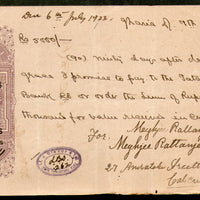 Due 6th July 1922. Jharia D. 9th
Rs 5000/-
(90) Ninety days after da
grace I promise to pay to the Tata
Bank Ld or order the Sum of Rup
thousand for value received in ca
For. Meghji Rattan
Meghjee Rattanje
27 Amratola Street
Calcu